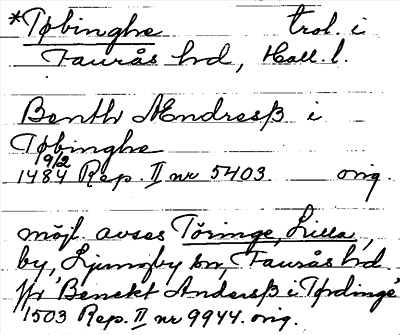 *Tøbinghe trol. i
Faurås hd, Hall. l.
Benth Ændresß i
Tøbinghe
19/2
1484 Rep. II nr 5403. orig.
möjl. avses Töringe, Lilla,
by, Ljungby sn, Faurås hd.
Jfr 'Benckt Andersß i Tørdinge'
1503 Rep. II nr 9944. orig.